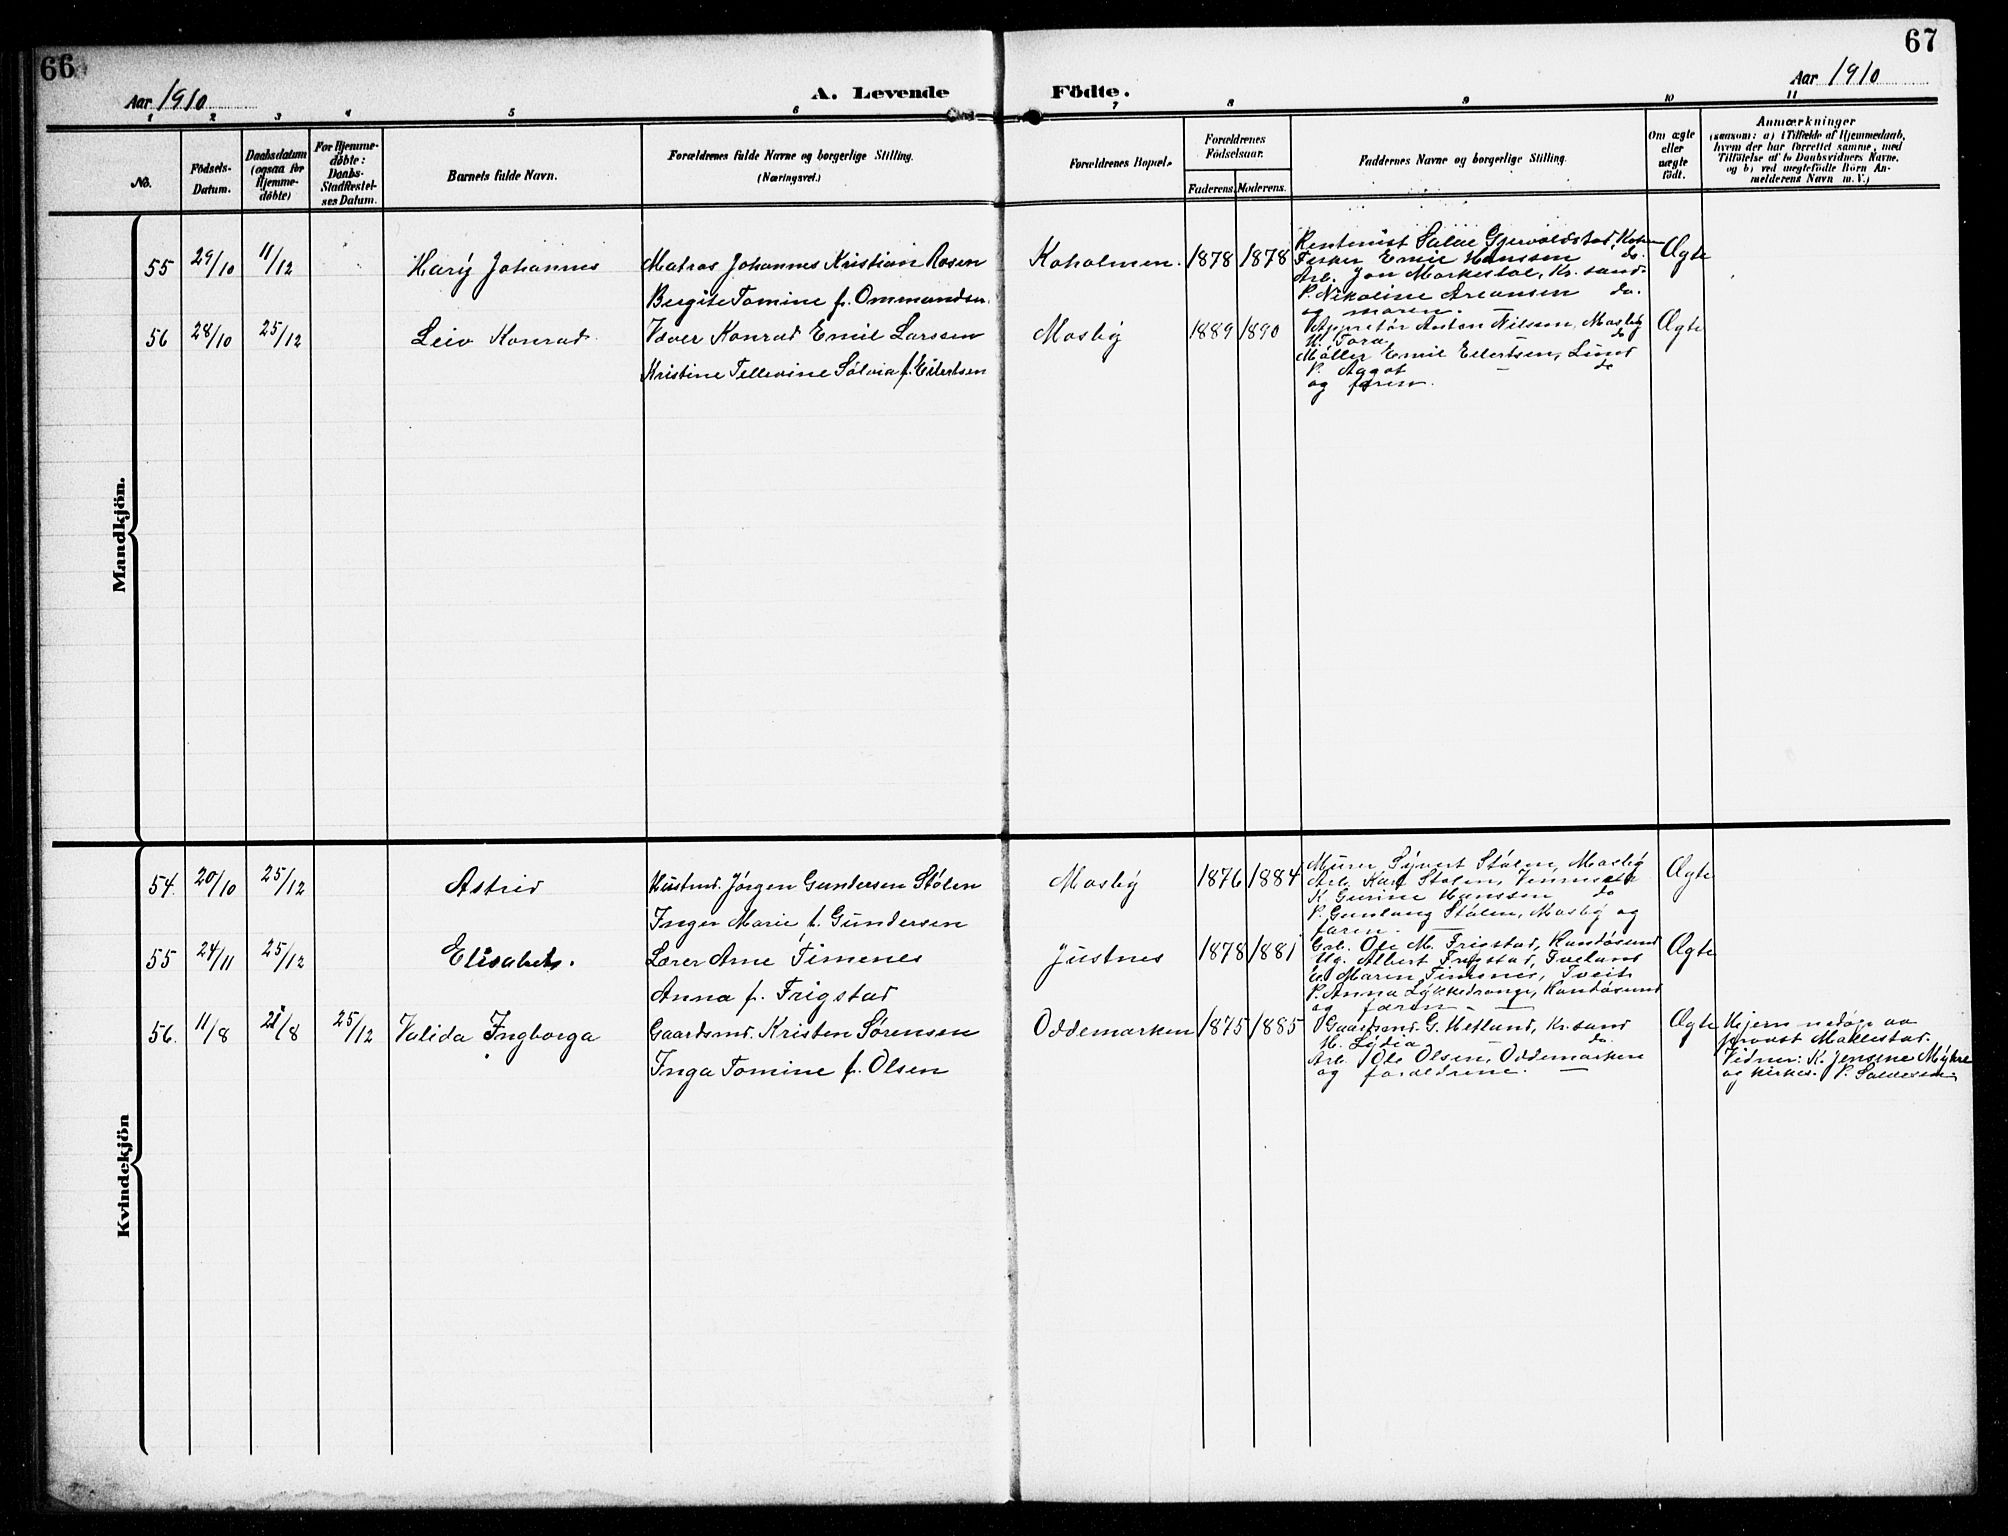 66
67
Aar 1910
A. Levende Födte.
Aar 1910
1 2 3 4 5 6 7 8 9 10 11
No.
Födsels-Datum.
Daabsdatum (ogsaa for Hjemme-döbte)
For Hjemme-döbte: Daabs-Stadfæstel-ses Datum.
Barnets fulde Navn.
Forældrenes fulde Navne og borgerlige Stilling.
(Næringsvei.)
Forældrenes Bopæl.
Forældrenes Födselsaar.
Faderens. Moderens.
Faddernes Navne og borgerlige Stilling.
Om ægte eller uægte födt.
Anmærkninger
(saasom: a) i Tilfælde af Hjemmedaab,
hvem der har forrettet samme, med
Tilföielse af to Daabsvidners Navne,
og b) ved uægtefödte Börn An-
melderens Navn m. V.)
Mandkjön.
55 29/10 11/12 Harÿ Johannes
Matros Johannes Kristian Aasen
Bergite Tomine f. Ommundsen
Koholmen. 1878 1878
Rentenist Salve Gjervoldstad,
Fisker Emil Hanssen do.
Arb. Jon Markestøl, Kr.sand.
P. Nikoline Areansen do.
og moren.
Ægte
56 28/10 25/12 Leiv Konrad
Væver Konrad Emil Larssen
Kristine Tellevine Sølvia f. Eilertsen
Mosbÿ 1889 1890
Appretør Anton Nilsen, Mosbÿ
H. Tora do
Møller Emil Eilertsen, Lund
P. Aggot — do
og faren.
Ægte
Kvindekjön
54. 20/10 25/12 Astrid
Hustmd. Jørgen Gundersen Stølen
Inger Marie f. Gundersen
Mosbÿ 1876 1884
Murer Sÿvert Stølen, Mosbÿ
Arb. Karl Stølen, Vennesla
K. Gurine Hanssen do
P. Gunlaug Stølen, Mosbÿ og
faren. —
Ægte
55 24/11 25/12 Elisabet.
Lærer Arne Timenes
Anna f. Frigstad
Justnes 1878 1881
Ole M. Frigstad, Randøsund
Ug. Albert Frigstad, Tveland
Maren Timenes, Tveit
P. Anna Lÿkkedrange, Randøsund
og faren — —
Ægte
56. 11/8 21/8 25/12 Valida Ingborga
Gaardsmd. Kristen Sørensen
Inga Tomine f. Olsen
Oddemarken 1875 1885
Gaardsmd. G. Hetland, Kr.sand
H. Lÿdia — do.
Arb. Ole Olsen, Oddemarken
og forældrene. —
Ægte
Hjemmedøpt av
provst Mallestad.
Vidner: K. Jensine Mÿhre
og kirkes. P. Salvesen.